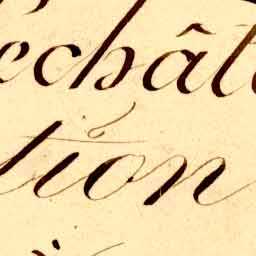 échât
tion